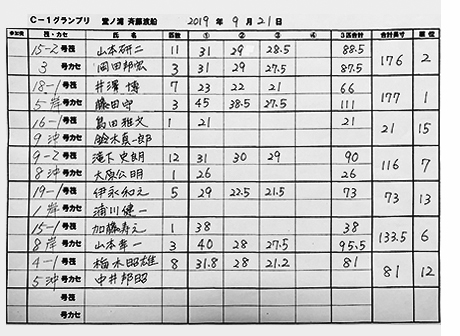 C-1グランプリ 堂ノ浦 斉藤渡船 2019年 9月 21日
筏・カセ 氏名 匹数 ① ② ③ ④ 3匹合計 合計長寸 順位
15-2 号筏 山本研二 11 31 29 28.5 88.5 176 2
3 号カセ 岡田邦宏 3 31 29 27.5 87.5
18-1 号筏 井澤 博 7 23 22 21 66 177 1
5岸 号カセ 藤田守 3 45 38.5 27.5 111
16-1 号筏 島田雅文 1 21 21 21 15
9沖 号カセ 鈴木真一郎
9-2 号筏 滝下史朗 12 31 30 29 90 116 7
8沖 号カセ 大原公明 1 26 26
19-1 号筏 伊永和元 5 29 22.5 21.5 73 73 13
1岸 号カセ 浦川健一
15-1 号筏 加藤寿元 1 38 38 133.5 6
8岸 号カセ 山本幸一 3 40 28 27.5 95.5
4-1 号筏 梅木昭雄 8 31.8 28 21.2 81 81 12
5沖 号カセ 中井邦昭
号筏
号カセ